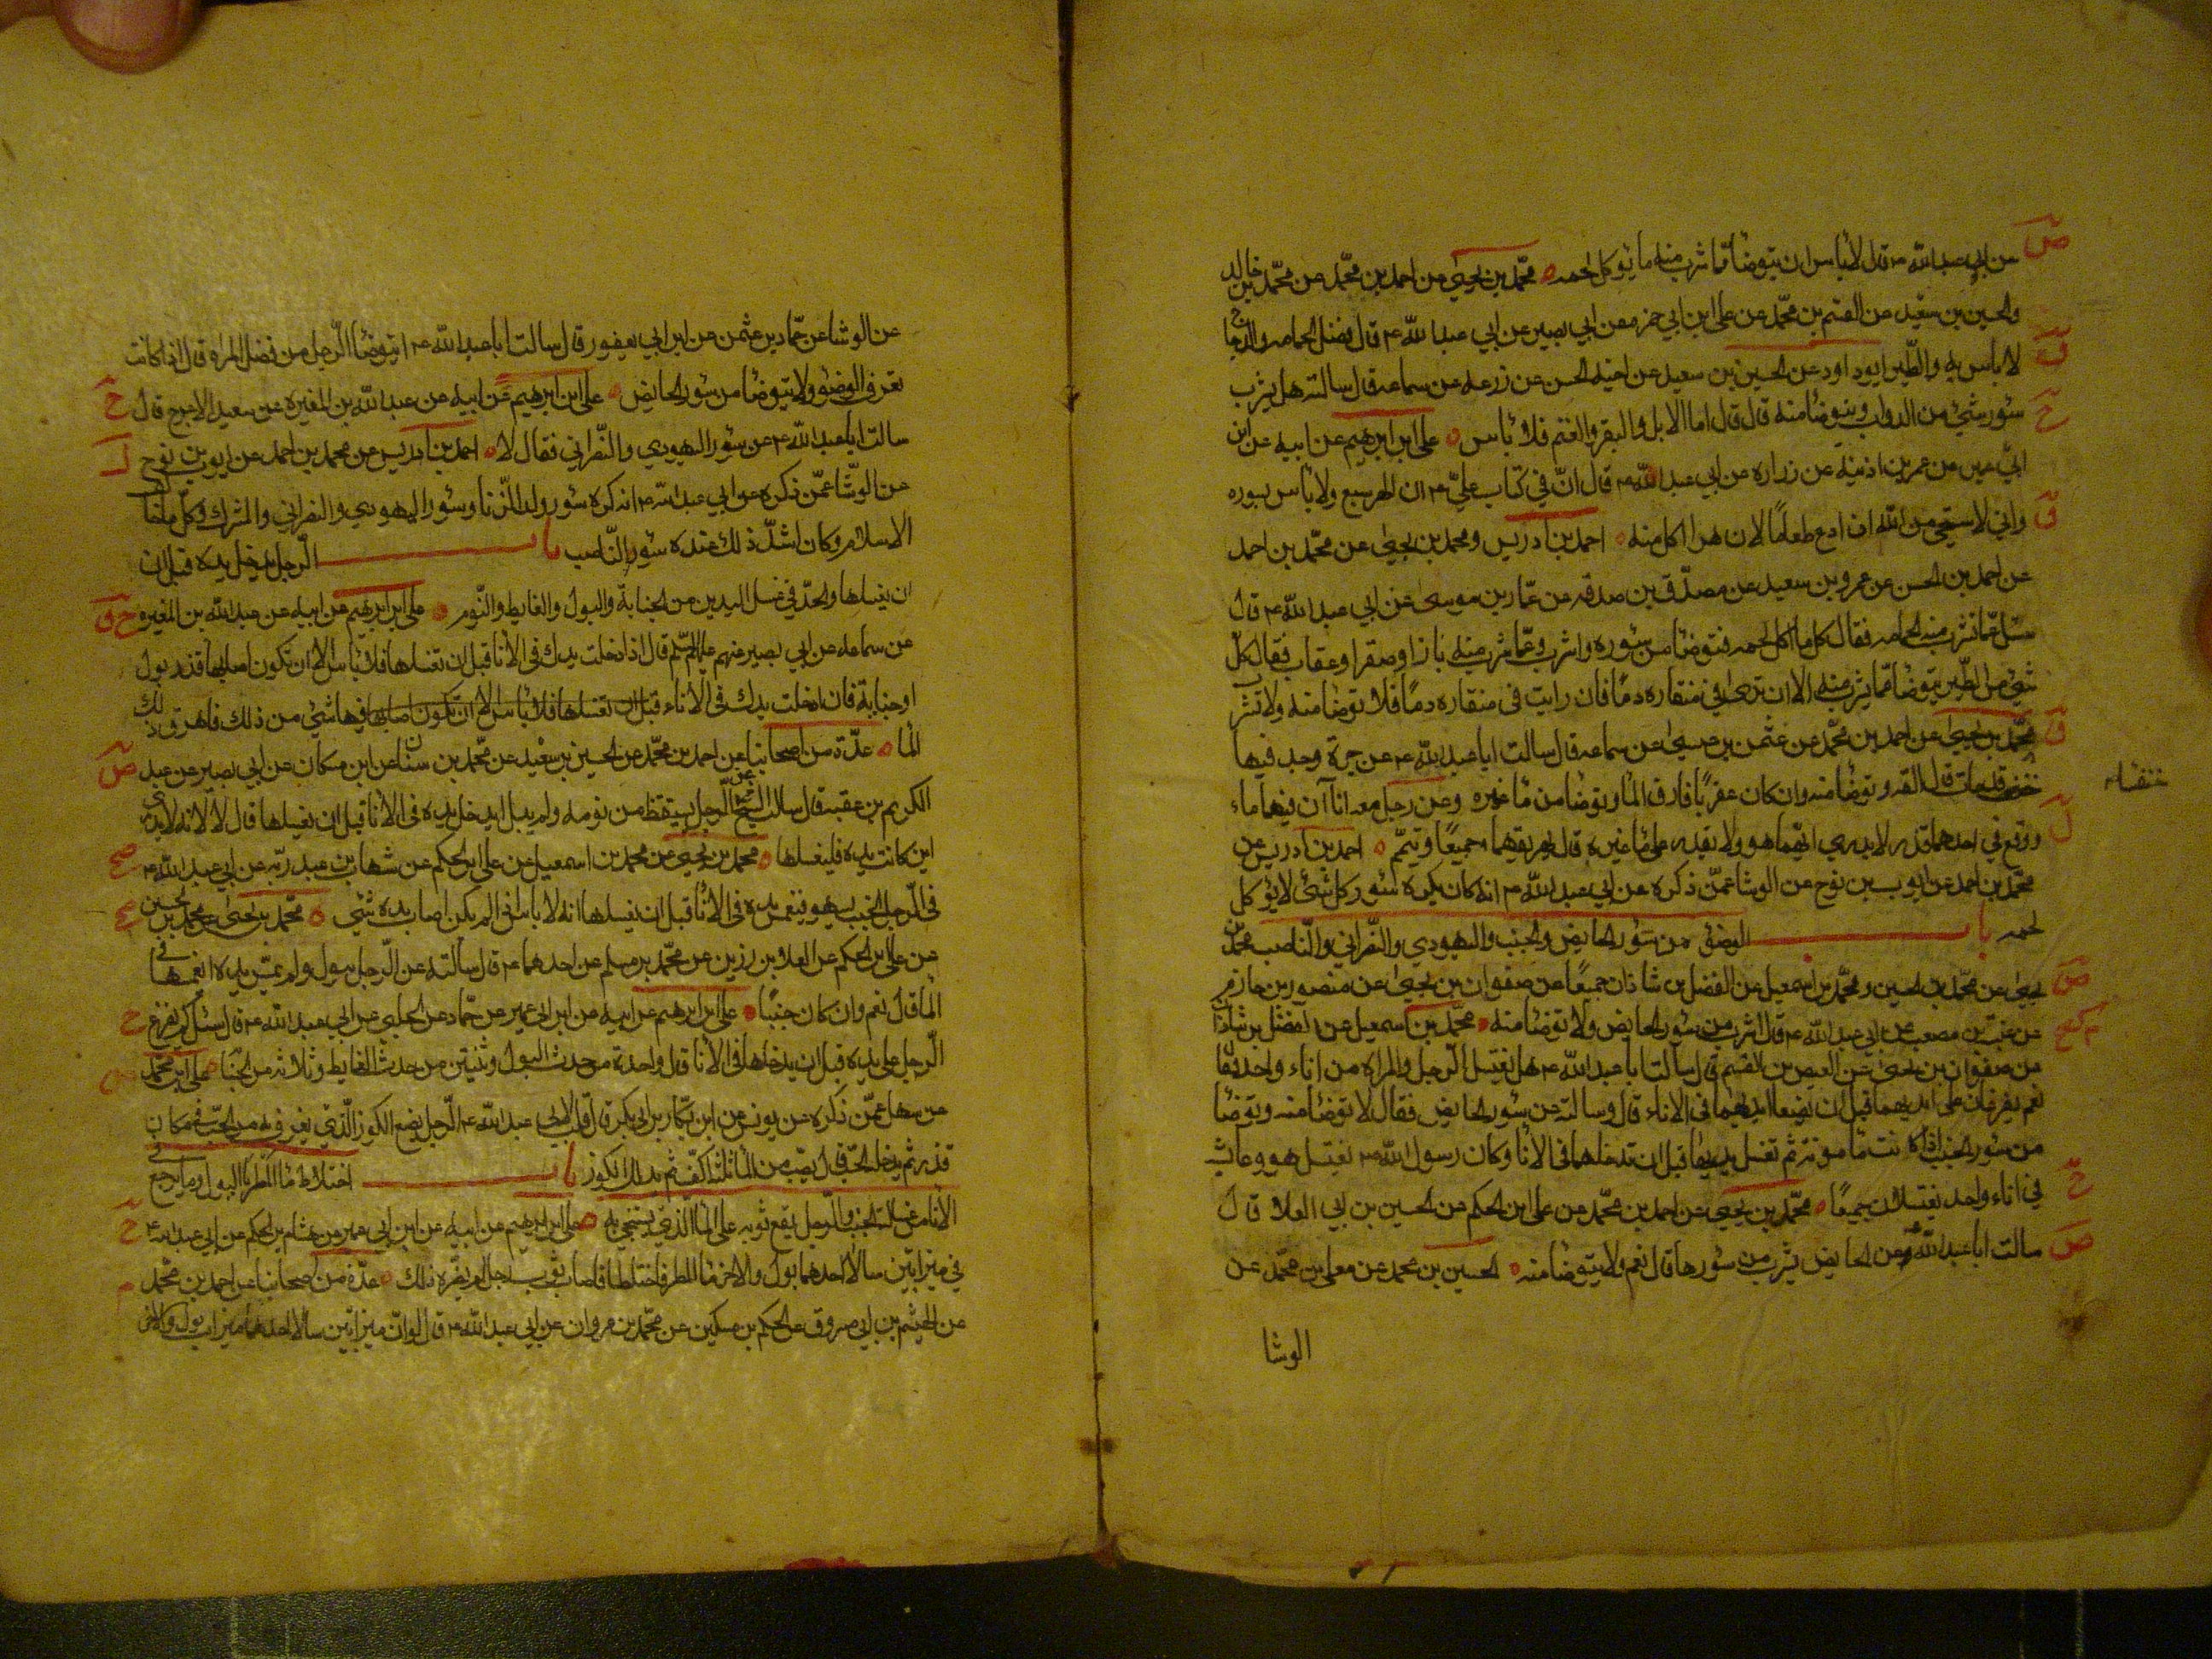 عن ابي عبد الله ع قال لا باس ان يتوضا مما شرب منه ما يوكل لحمه ه محمد بن يحيى عن احمد بن محمد عن محمد بن خالد
والحسين بن سعيد عن القسم بن محمد عن علي ابن ابي حمزه عن ابي بصير عن ابي عبد الله ع قال فضل الحمامه والدجاج
لا باس به والطير ابو داود عن الحسين بن سعيد عن اخيه الحسن عن زرعه عن سماعه قال سالته هل يشرب
سور شئ من الدواب ويتوضا منه قال قال اما الابل والبقر والغنم فلا باس ه علي ابن ابرهيم عن ابيه عن ابن
ابي عمير عن عمر بن اذينه عن زراره عن ابي عبد الله ع قال ان في كتاب علي ع ان الهر سبع ولا باس بسوره
واني لاستحيي من الله ان ادع طعاما لان هرا اكل منه ه احمد بن ادريس ومحمد بن يحيى عن محمد بن احمد
عن احمد بن الحسن عن عمرو بن سعيد عن مصدق بن صدقه عن عمار بن موسى عن ابي عبد الله ع قال
سئل عما تشرب منه الحمامه فقال كل ما اكل لحمه فتوضا من سوره واشرب وعما شرب منه باز او صقر او عقاب فقال كل
شئ من الطير يتوضا مما يشرب منه الا ان ترى في منقاره دما فان رايت في منقاره دما فلا توضا منه ولا تشرب
محمد بن يحيى عن احمد بن محمد عن عثمن بن عيسى عن سماعه قال سالت ابا عبد الله ع عن جرة وجد فيها
خنفس قد مات قال القه وتوضا منه وان كان عقربا فارق الما وتوضا من ما غيره وعن رجل معه انا آن فيهما ماء
خنفساء
ووقع في احدهما قذر لا يدري ايهما هو ولا يقدر على ما غيره قال يهريقهما جميعا ويتيمم ه احمد بن ادريس عن
محمد بن احمد عن ايوب بن نوح عن الوشا عمن ذكره عن ابي عبد الله ع انه كان يكره سور كل شئ لا يوكل
لحمه باب الوضوء من سور الحايض والجنب واليهودي والنصراني والناصب محمد بن
يحيى عن محمد بن الحسين ومحمد بن اسمعيل عن الفضل بن شاذان جميعا عن صفوان بن يحيى عن منصور بن حازم
عن عنبسة بن مصعب عن ابي عبد الله ع قال اشرب من سور الحايض ولا توضا منه ه محمد بن اسمعيل عن الفضل بن شاذان
عن صفوان بن يحيى عن العيص بن القسم قال سالت ابا عبد الله ع هل يغتسل الرجل والمراه من اناء واحد فقال
نعم يفرغان على ايديهما قبل ان يضعا ايديهما في الاناء قال وسالته عن سور الحايض فقال لا توضا منه وتوضا
من سور الجنب اذا كانت مامونة ثم تغسل يديها قبل ان تدخلهما في الانا وكان رسول الله ص يغتسل هو وعايشه
في اناء واحد يغتسلان جميعا ه محمد بن يحيى عن احمد بن محمد عن علي ابن الحكم عن الحسين بن ابي العلا قال
سالت ابا عبد الله ع عن الحايض يشرب من سورها قال نعم ولا يتوضا منه ه الحسين بن محمد عن معلى بن محمد عن
الوشا
عن الوشا عن حماد بن عثمن عن ابن ابي يعفور قال سالت ابا عبد الله ع ايتوضا الرجل من فضل المراه قال اذا كانت
تعرف الوضو ولا يتوضا من سور الحايض ه علي ابن ابرهيم عن ابيه عن عبد الله بن المغيره عن سعيد الاعرج قال
سالت ابا عبد الله ع عن سور اليهودي والنصراني فقال لا ه احمد بن ادريس عن محمد بن احمد عن ايوب بن نوح
عن الوشا عمن ذكره عن ابي عبد الله ع انه كره سور ولد الزنا وسور اليهودي والنصراني والمشرك وكل ما خالف
الاسلام وكان اشد ذلك عنده سور الناصب باب الرجل يدخل يده قبل ان
ان يغسلها والحد في غسل اليدين من الجنابة والبول والغايط والنوم ه علي ابن ابرهيم عن ابيه عن عبد الله بن المغيره
عن سماعه عن ابي بصير عنهم عليهم السلم قال اذا دخلت يدك في الانا قبل ان تغسلها فلا باس الا ان تكون اصابها قذر بول
او جنابة فان ادخلت يدك في الاناء قبل ان تغسلها فلا باس الا ان تكون اصابها فيها شئ من ذلك فاهرق ذلك
الما ه عدة من اصحابنا عن احمد بن محمد عن الحسين بن سعيد عن محمد بن سنان عن ابن مسكان عن ابي بصير عن عبد
الكريم بن عقبه قال سالت الشيخ عن الرجل يستيقظ من نومه ولم يبل ايدخل يده في الانا قبل ان يغسلها قال لا لانه لا يدرى
اين كانت يده فليغسلها ه محمد بن يحيى عن محمد بن اسمعيل عن علي ابن الحكم عن شهاب بن عبد ربه عن ابي عبد الله ع
في الرجل الجنب يسهو فيغمس يده في الانا قبل ان يغسلها انه لا باس اذا لم يكن اصاب يده شئ ه محمد بن يحيى عن محمد بن الحسين
عن علي ابن الحكم عن العلا بن رزين عن محمد بن مسلم عن احدهما ع قال سالته عن الرجل يبول ولم يمس يده ايغمسها في
الما قال نعم وان كان جنبا ه علي ابن ابرهيم عن ابيه عن ابن ابي عمير عن حماد عن الحلبي عن ابي عبد الله ع قال سئل كم يفرغ
الرجل على يده قبل ان يدخلها في الانا قال واحدة من حدث البول وثنتين من حدث الغايط وثلاثه من الجنابة علي ابن محمد
عن سهل عمن ذكره عن يونس عن ابن بكار بن ابي بكر قال قلت لابي عبد الله ع الرجل يضع الكوز الذي يغرف به من الحب في مكان
قذر ثم يدخله الحب قال يصب من الما ثلثا اكف ثم يدلك الكوز باب اختلاط ما المطر بالبول وما يرجع في
الانا من غسالة الجنب والرجل يقع ثوبه على الما الذي يستنجي به ه علي ابن ابرهيم عن ابيه عن ابن ابي عمير عن هشام بن الحكم عن ابي عبد الله ع
في ميزابين سالا احدهما بول والاخر ما المطر فاختلطا فاصاب ثوب رجل لم يضره ذلك ه عدة من اصحابنا عن احمد بن محمد
عن الهيثم بن ابي مسروق عن الحكم بن مسكين عن محمد بن مروان عن ابي عبد الله ع قال لو ان ميزابين سالا احدهما ميزاب بول والاخر